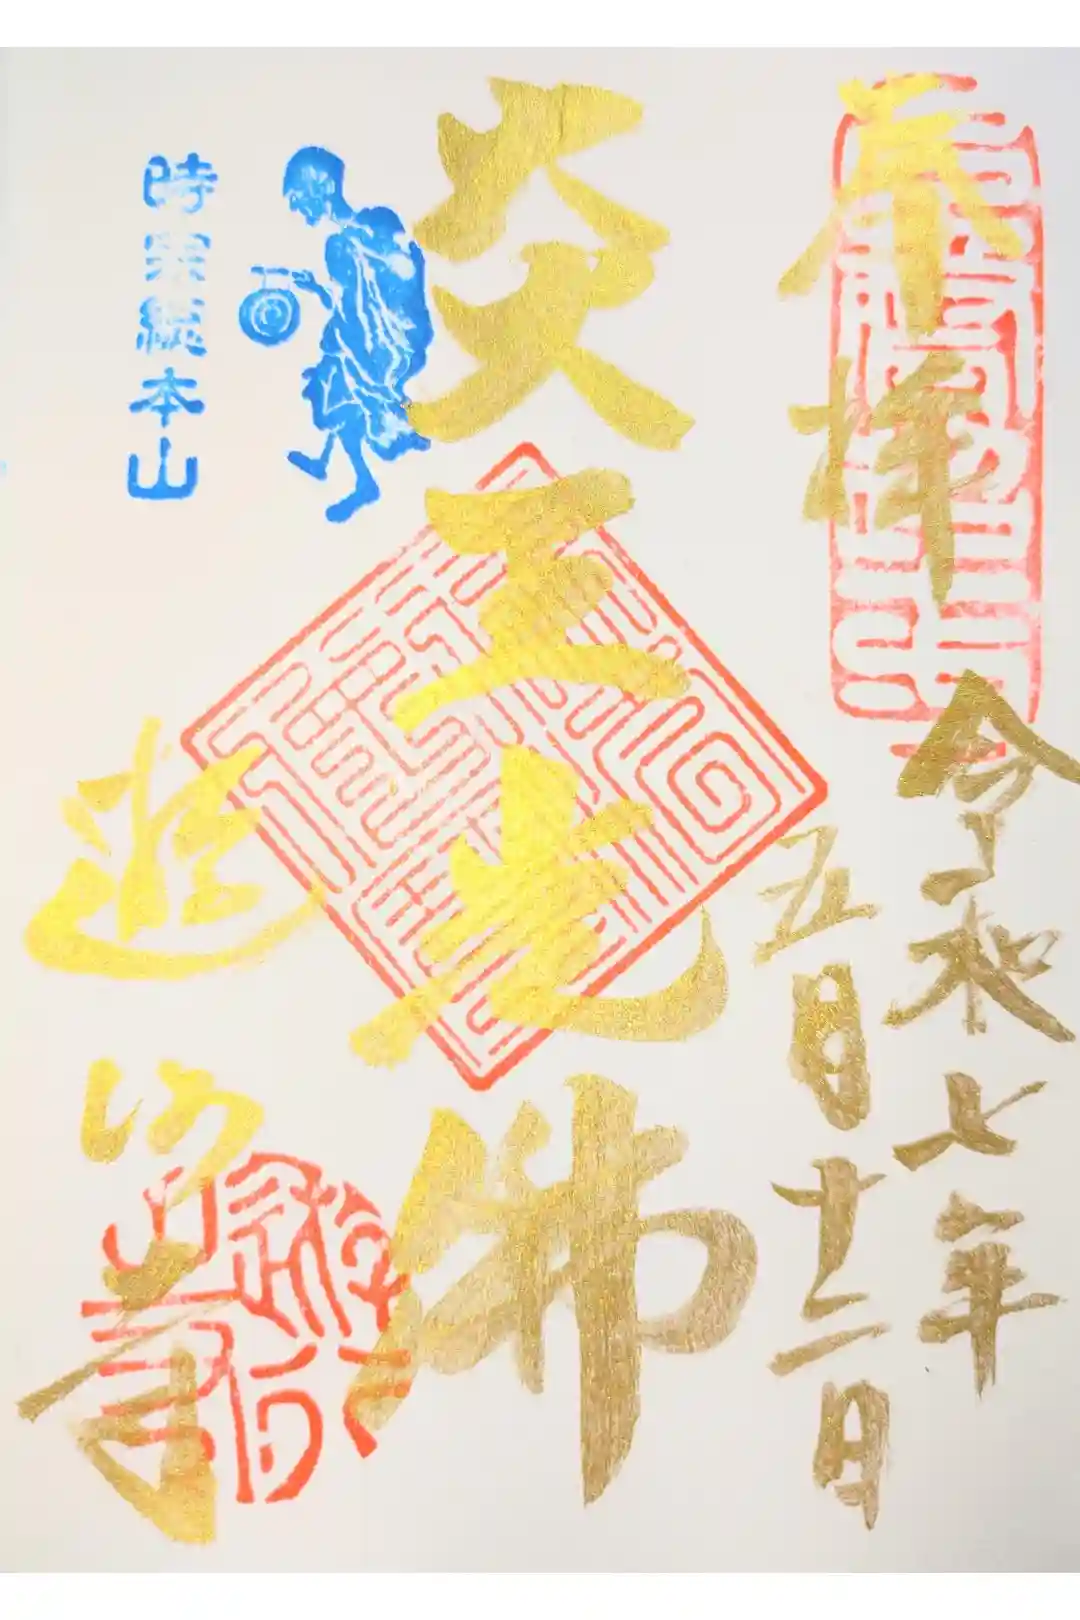 奉拝
令和七年
五月十二日
炎王光佛
時宗総本山
遊行寺